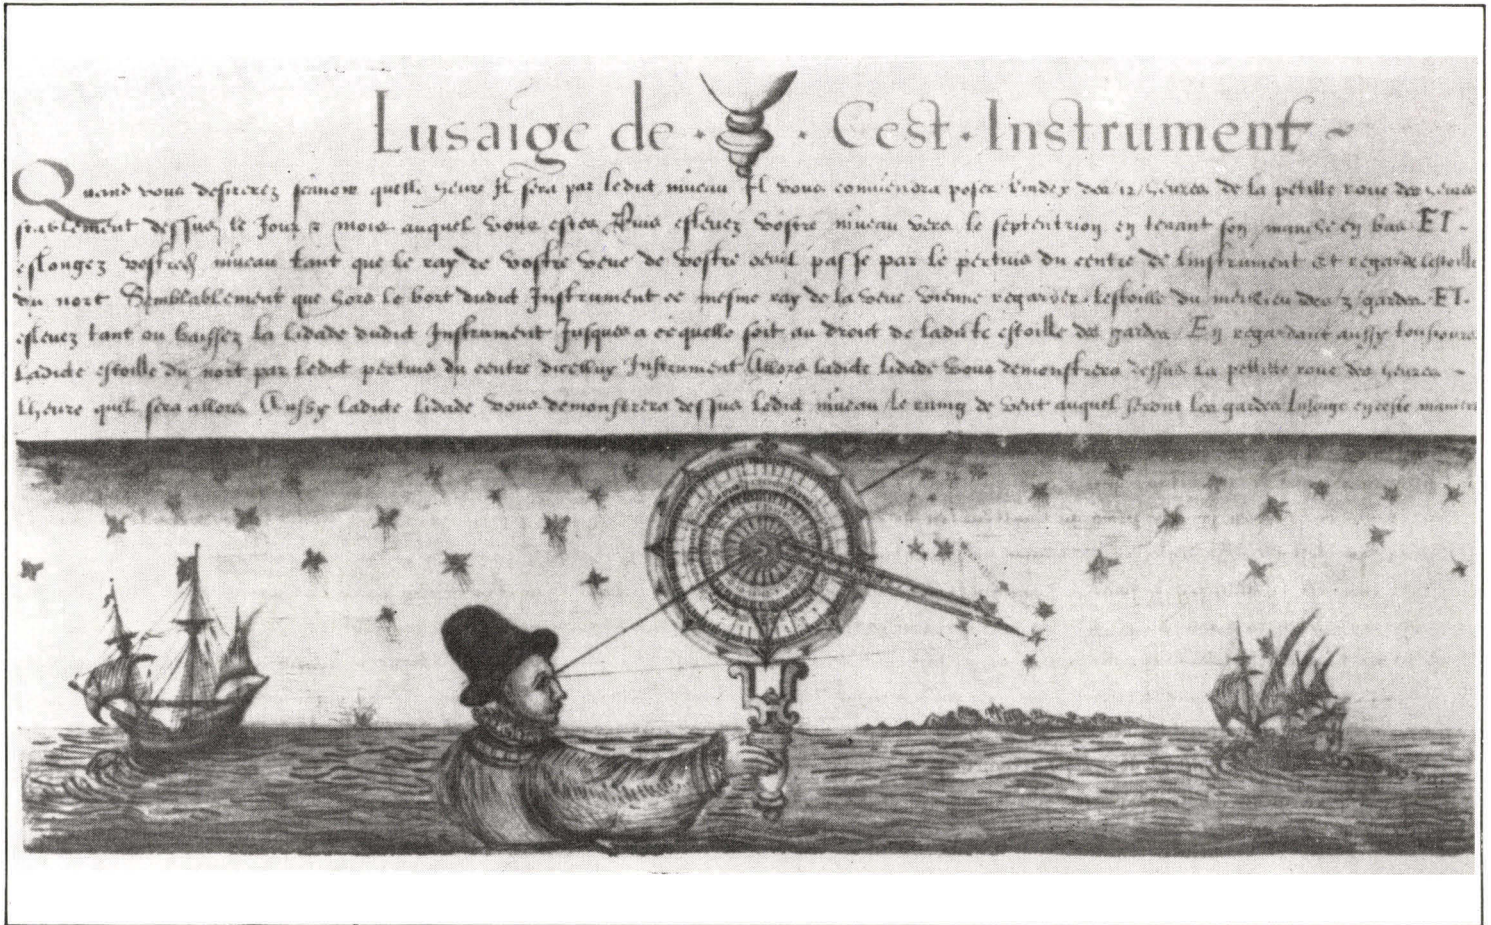 Lusaige de · Cest · Instrument ~
Quand vous desirerez scauoir quelle heure Il sera par ledict niueau Il vous conuiendra poser lindex des 12 heures de la petitte roue des heures
dessus le Jour & mois auquel vous estes Puis esleuez vostre niueau vers le septentrion en tenant son manche en bas ET -
eslongez niueau tant que le ray de vostre veue de vostre oeuil passe par le pertuis du centre de linstrument et regarde lestoille
du nort Semblablement que hors le bort dudict Instrument ce mesme ray de la veue vienne regarder lestoille du des gardes ET.
esleuez tant ou baissez la lidade dudict Instrument Jusques a ce quelle soit au droit de ladicte estoille des gardes En regardant aussy tousiours
ladicte estoille du nort par ledict pertuis du centre dicelluy Instrument Allors ladicte lidade vous demonstrera dessus la petitte roue des heures ~
Lheure quil sera allors Aussy ladicte lidade vous demonstrera dessus ledict niueau le rung de vent auquel seront les gardes en ceste maniere